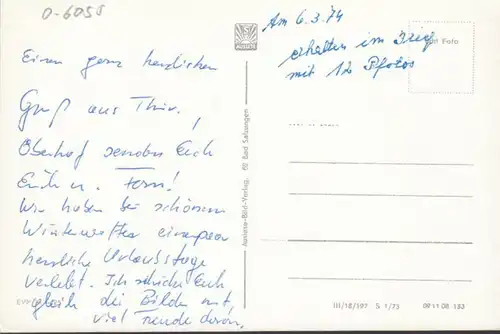 O-6055
Einen ganz herzlichen
Gruß aus Thür.,
Oberhof senden Euch
u. Fam!
Wir haben bei schönem
Winterwetter ein paar
herzliche Urlaubstage
verlebt. Ich schicke Euch
gleich die Bilder mit,
viel Freude daran,
EVP
Auslese-Bild-Verlag, 62 Bad Salzungen
Am 6.3.74
erhalten im
mit 12 Pfotos
Foto
III/18/197 S 1/73 09 11 08 133